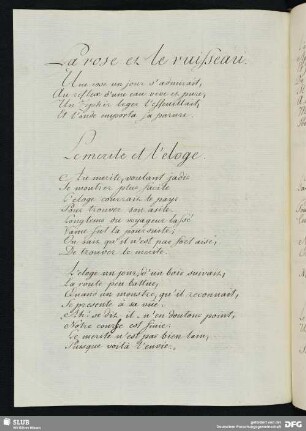 La rose et le ruisseau.
Une rose un jour s'admirait,
Au reflex d'une eau vive et pure,
Un Zéphir leger l'effeuillait,
Et l'onde emporta sa parure.
Le merite et l'eloge
Le merite, voulant jadis
Se montrer plus facile
L'eloge courrait le pays
Pour trouver son asile.
Longtems du voyageur lassé
Vaine fut la poursuite;
On sait qu'il n'est pas fort aisé,
De trouver le merite.
L'eloge un jour, d'un bois suivait
La route peu battue,
Quand un monstre, qu'il reconnait,
Se presente à sa vue.
Ah! se dit il, n'en doutons point,
Notre course est finie.
Le merite n'est pas bien loin,
Puisque voilà l'envie.
SLUB
DFG